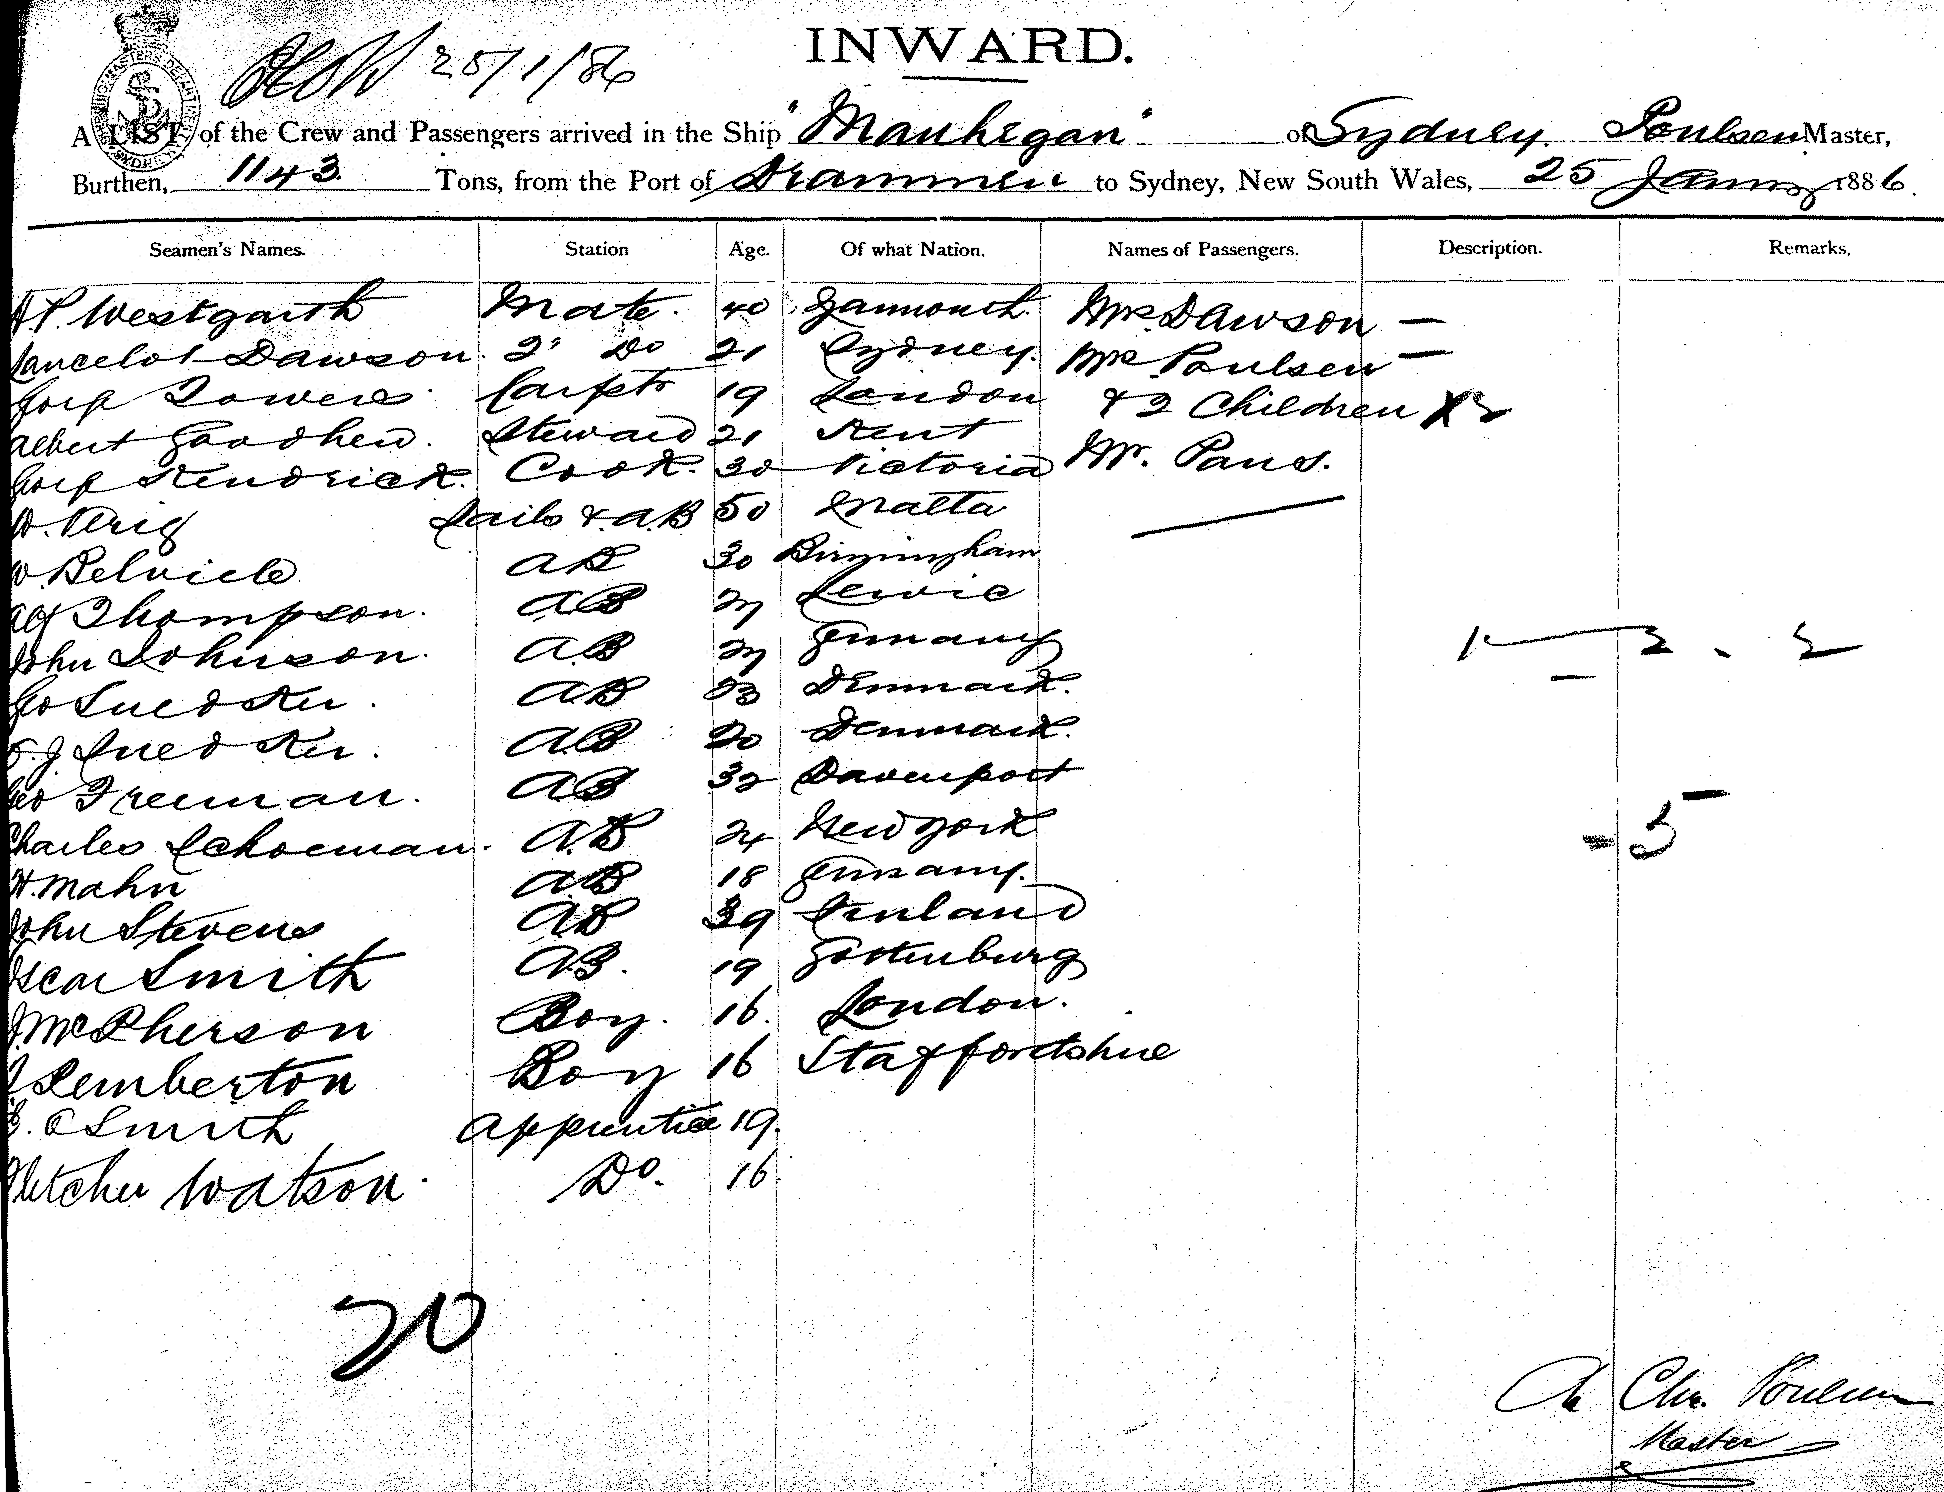 INWARD.
25/1/86
A LIST of the Crew and Passengers arrived in the Ship "Mauhegan" of Sydney. Poulsen Master,
Burthen, 1143 Tons, from the Port of Drammen to Sydney, New South Wales, 25 January 1886.
Seamen's Names. Station Age. Of what Nation. Names of Passengers. Description. Remarks.
Westgarth Mate. 40 Yarmouth. Mrs. Dawson —
Lancelot Dawson. 2d Do 21 Sydney. Mrs Poulsen —
Towers Carptr 19 London & 2 Children X 2
Albert Goodhew. Steward 21 Kent
Kendrick. Cook. 30 Victoria Mr.
Sails & A.B 50 Malta
W. Belville AB 30 Birmingham
Alf Thompson. AB 27 Lewic
John Johnson. A.B 27 Germany 1 — 2 . 2
Geo Snedker. AB 23 Denmark. —
J Snedker. A.B 20 Denmark.
Geo Freeman. AB 32 Davenport
Charles Schoeman. A.B 24 New York - 5
H. Mahn A.B 18 Germany.
John Stevens AB 39 Finland
Oscar Smith AB. 19 Gottenburg
J. McPherson Boy. 16. London.
J. Pemberton Boy 16 Staffordshire
E. C Smith Apprentice 19.
Fletcher Watson. Do. 16.
20
Chr. Poulsen
Master